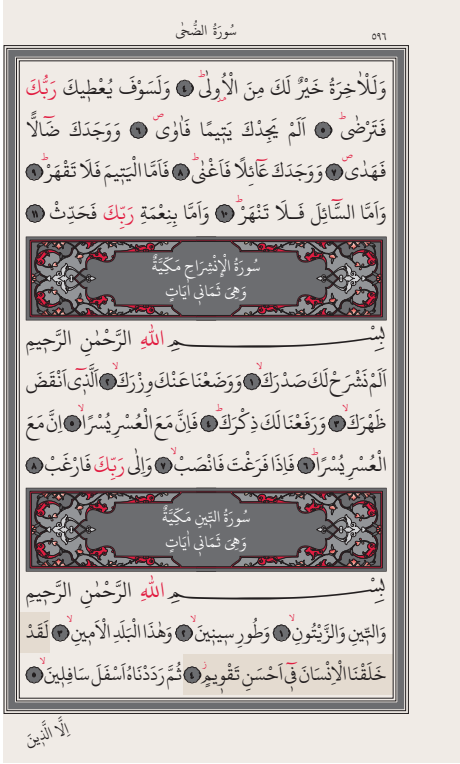 سُورَةُ الضُّحٰى
٥٩٦
وَلَلْاٰخِرَةُ خَيْرٌ لَكَ مِنَ الْاُو۫لٰىۜ ﴿٤﴾ وَلَسَوْفَ يُعْط۪يكَ رَبُّكَ
فَتَرْضٰىۜ ﴿٥﴾ اَلَمْ يَجِدْكَ يَت۪يمًا فَاٰوٰىۖ ﴿٦﴾ وَوَجَدَكَ ضَٓالًّا
فَهَدٰىۖ ﴿٧﴾ وَوَجَدَكَ عَٓائِلًا فَاَغْنٰىۜ ﴿٨﴾ فَاَمَّا الْيَت۪يمَ فَلَا تَقْهَرْۜ ﴿٩﴾
وَاَمَّا السَّٓائِلَ فَلَا تَنْهَرْۜ ﴿١٠﴾ وَاَمَّا بِنِعْمَةِ رَبِّكَ فَحَدِّثْ ﴿١١﴾
سُورَةُ الْاِنْشِرَاحِ مَكِّيَّةٌ
وَهِيَ ثَمَان۪ي اٰيَاتٍ
بِسْمِ اللّٰهِ الرَّحْمٰنِ الرَّح۪يمِ
اَلَمْ نَشْرَحْ لَكَ صَدْرَكَۙ ﴿١﴾ وَوَضَعْنَا عَنْكَ وِزْرَكَۙ ﴿٢﴾ اَلَّذ۪ٓي اَنْقَضَ
ظَهْرَكَۙ ﴿٣﴾ وَرَفَعْنَا لَكَ ذِكْرَكَۜ ﴿٤﴾ فَاِنَّ مَعَ الْعُسْرِ يُسْرًاۙ ﴿٥﴾ اِنَّ مَعَ
الْعُسْرِ يُسْرًاۜ ﴿٦﴾ فَاِذَا فَرَغْتَ فَانْصَبْۙ ﴿٧﴾ وَاِلٰى رَبِّكَ فَارْغَبْ ﴿٨﴾
سُورَةُ التّ۪ينِ مَكِّيَّةٌ
وَهِيَ ثَمَان۪ي اٰيَاتٍ
بِسْمِ اللّٰهِ الرَّحْمٰنِ الرَّح۪يمِ
وَالتّ۪ينِ وَالزَّيْتُونِۙ ﴿١﴾ وَطُورِ س۪ين۪ينَۙ ﴿٢﴾ وَهٰذَا الْبَلَدِ الْاَم۪ينِۙ ﴿٣﴾ لَقَدْ
خَلَقْنَا الْاِنْسَانَ ف۪ٓي اَحْسَنِ تَقْو۪يمٍۘ ﴿٤﴾ ثُمَّ رَدَدْنَاهُ اَسْفَلَ سَافِل۪ينَۙ ﴿٥﴾
اِلَّا الَّذ۪ينَ